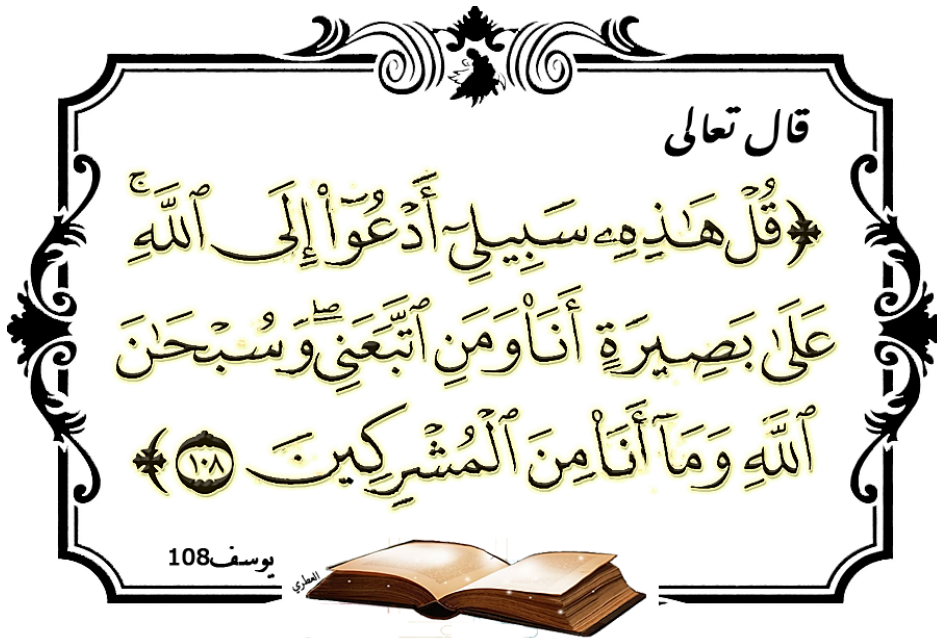 قال تعالى
﴿قُلْ هَـٰذِهِۦ سَبِيلِىٓ أَدْعُوٓا۟ إِلَى ٱللَّهِ ۚ
عَلَىٰ بَصِيرَةٍ أَنَا۠ وَمَنِ ٱتَّبَعَنِى ۖ وَسُبْحَـٰنَ
ٱللَّهِ وَمَآ أَنَا۠ مِنَ ٱلْمُشْرِكِينَ ١٠٨﴾
يوسف108
العطري